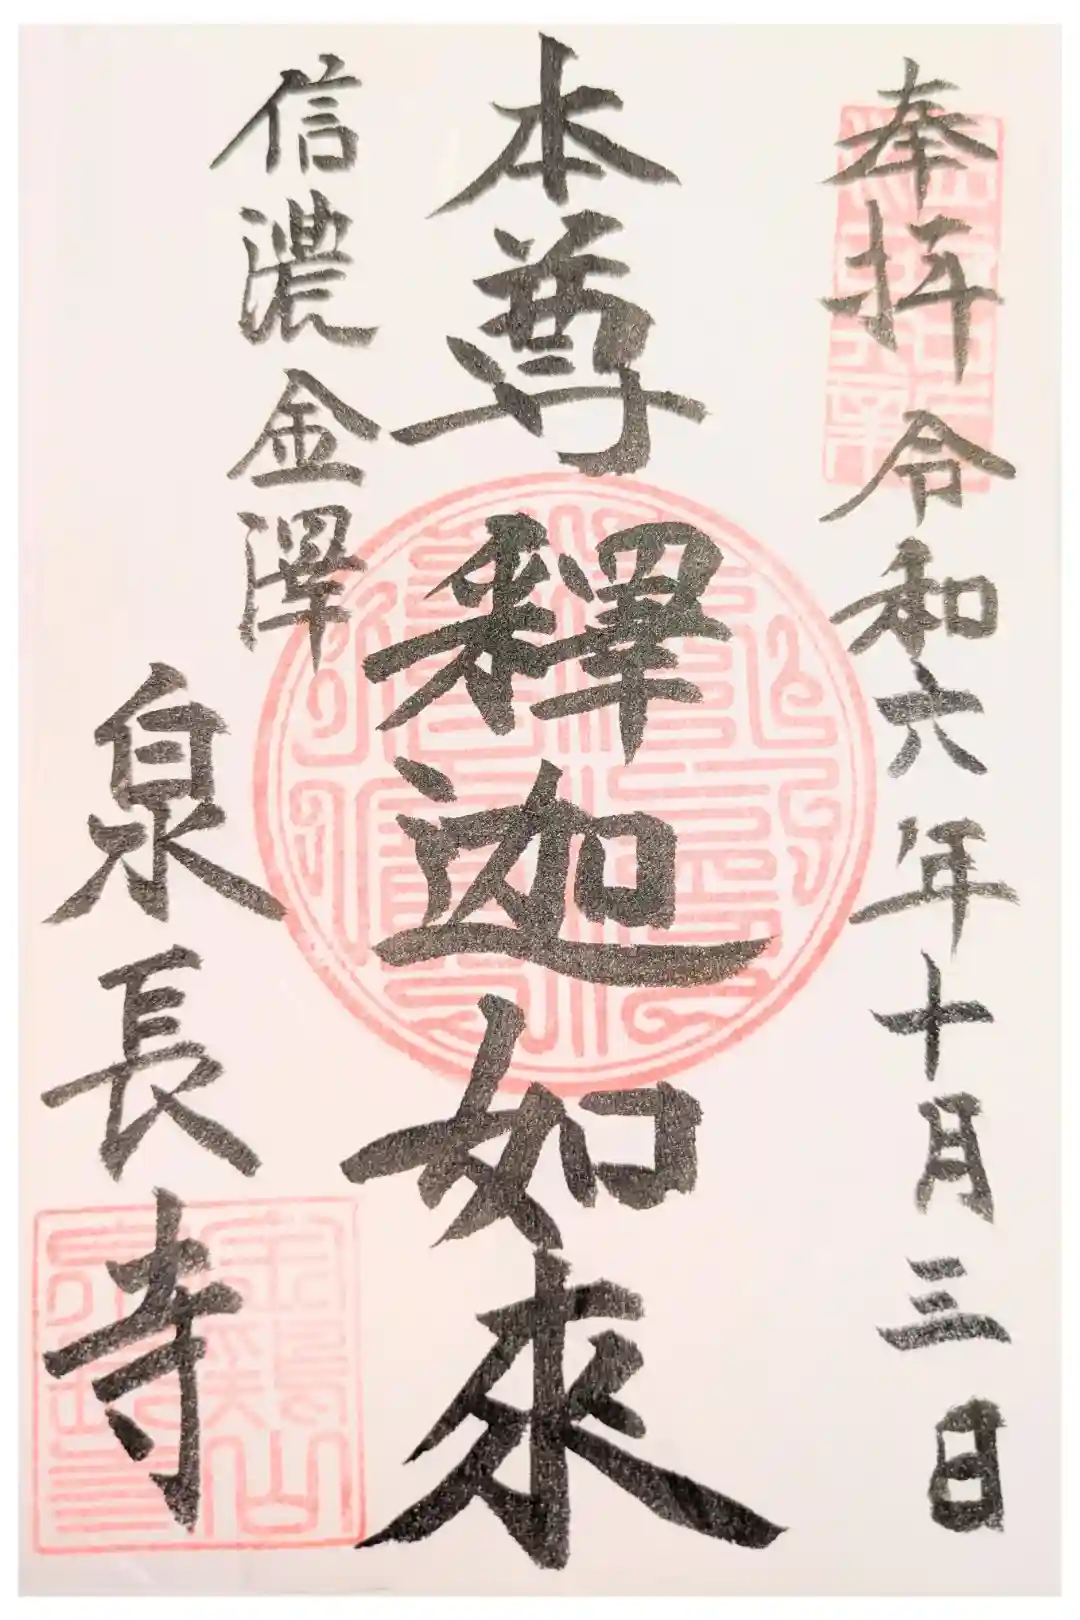 奉拝 令和六年十月三日
本尊釋迦如來
信濃金澤
泉長寺
金鶏山